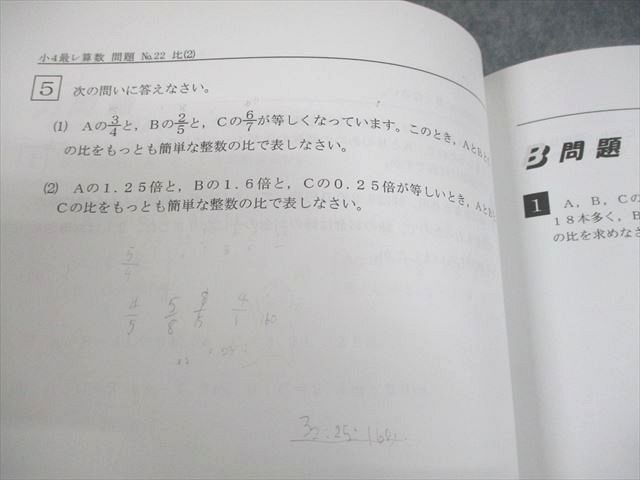 小4最レ算数 問題 №22 比(2)
5 次の問いに答えなさい。
(1) Aの3/4と，Bの2/5と，Cの6/7が等しくなっています。このとき，AとBと
の比をもっとも簡単な整数の比で表しなさい。
(2) Aの1.25倍と，Bの1.6倍と，Cの0.25倍が等しいとき，AとB
Cの比をもっとも簡単な整数の比で表しなさい。
5/4
4/5 5/8 8/5 4/1 160
32:25:160
B 問題
1 A，B，Cの
18本多く，B
の比を求めなさ